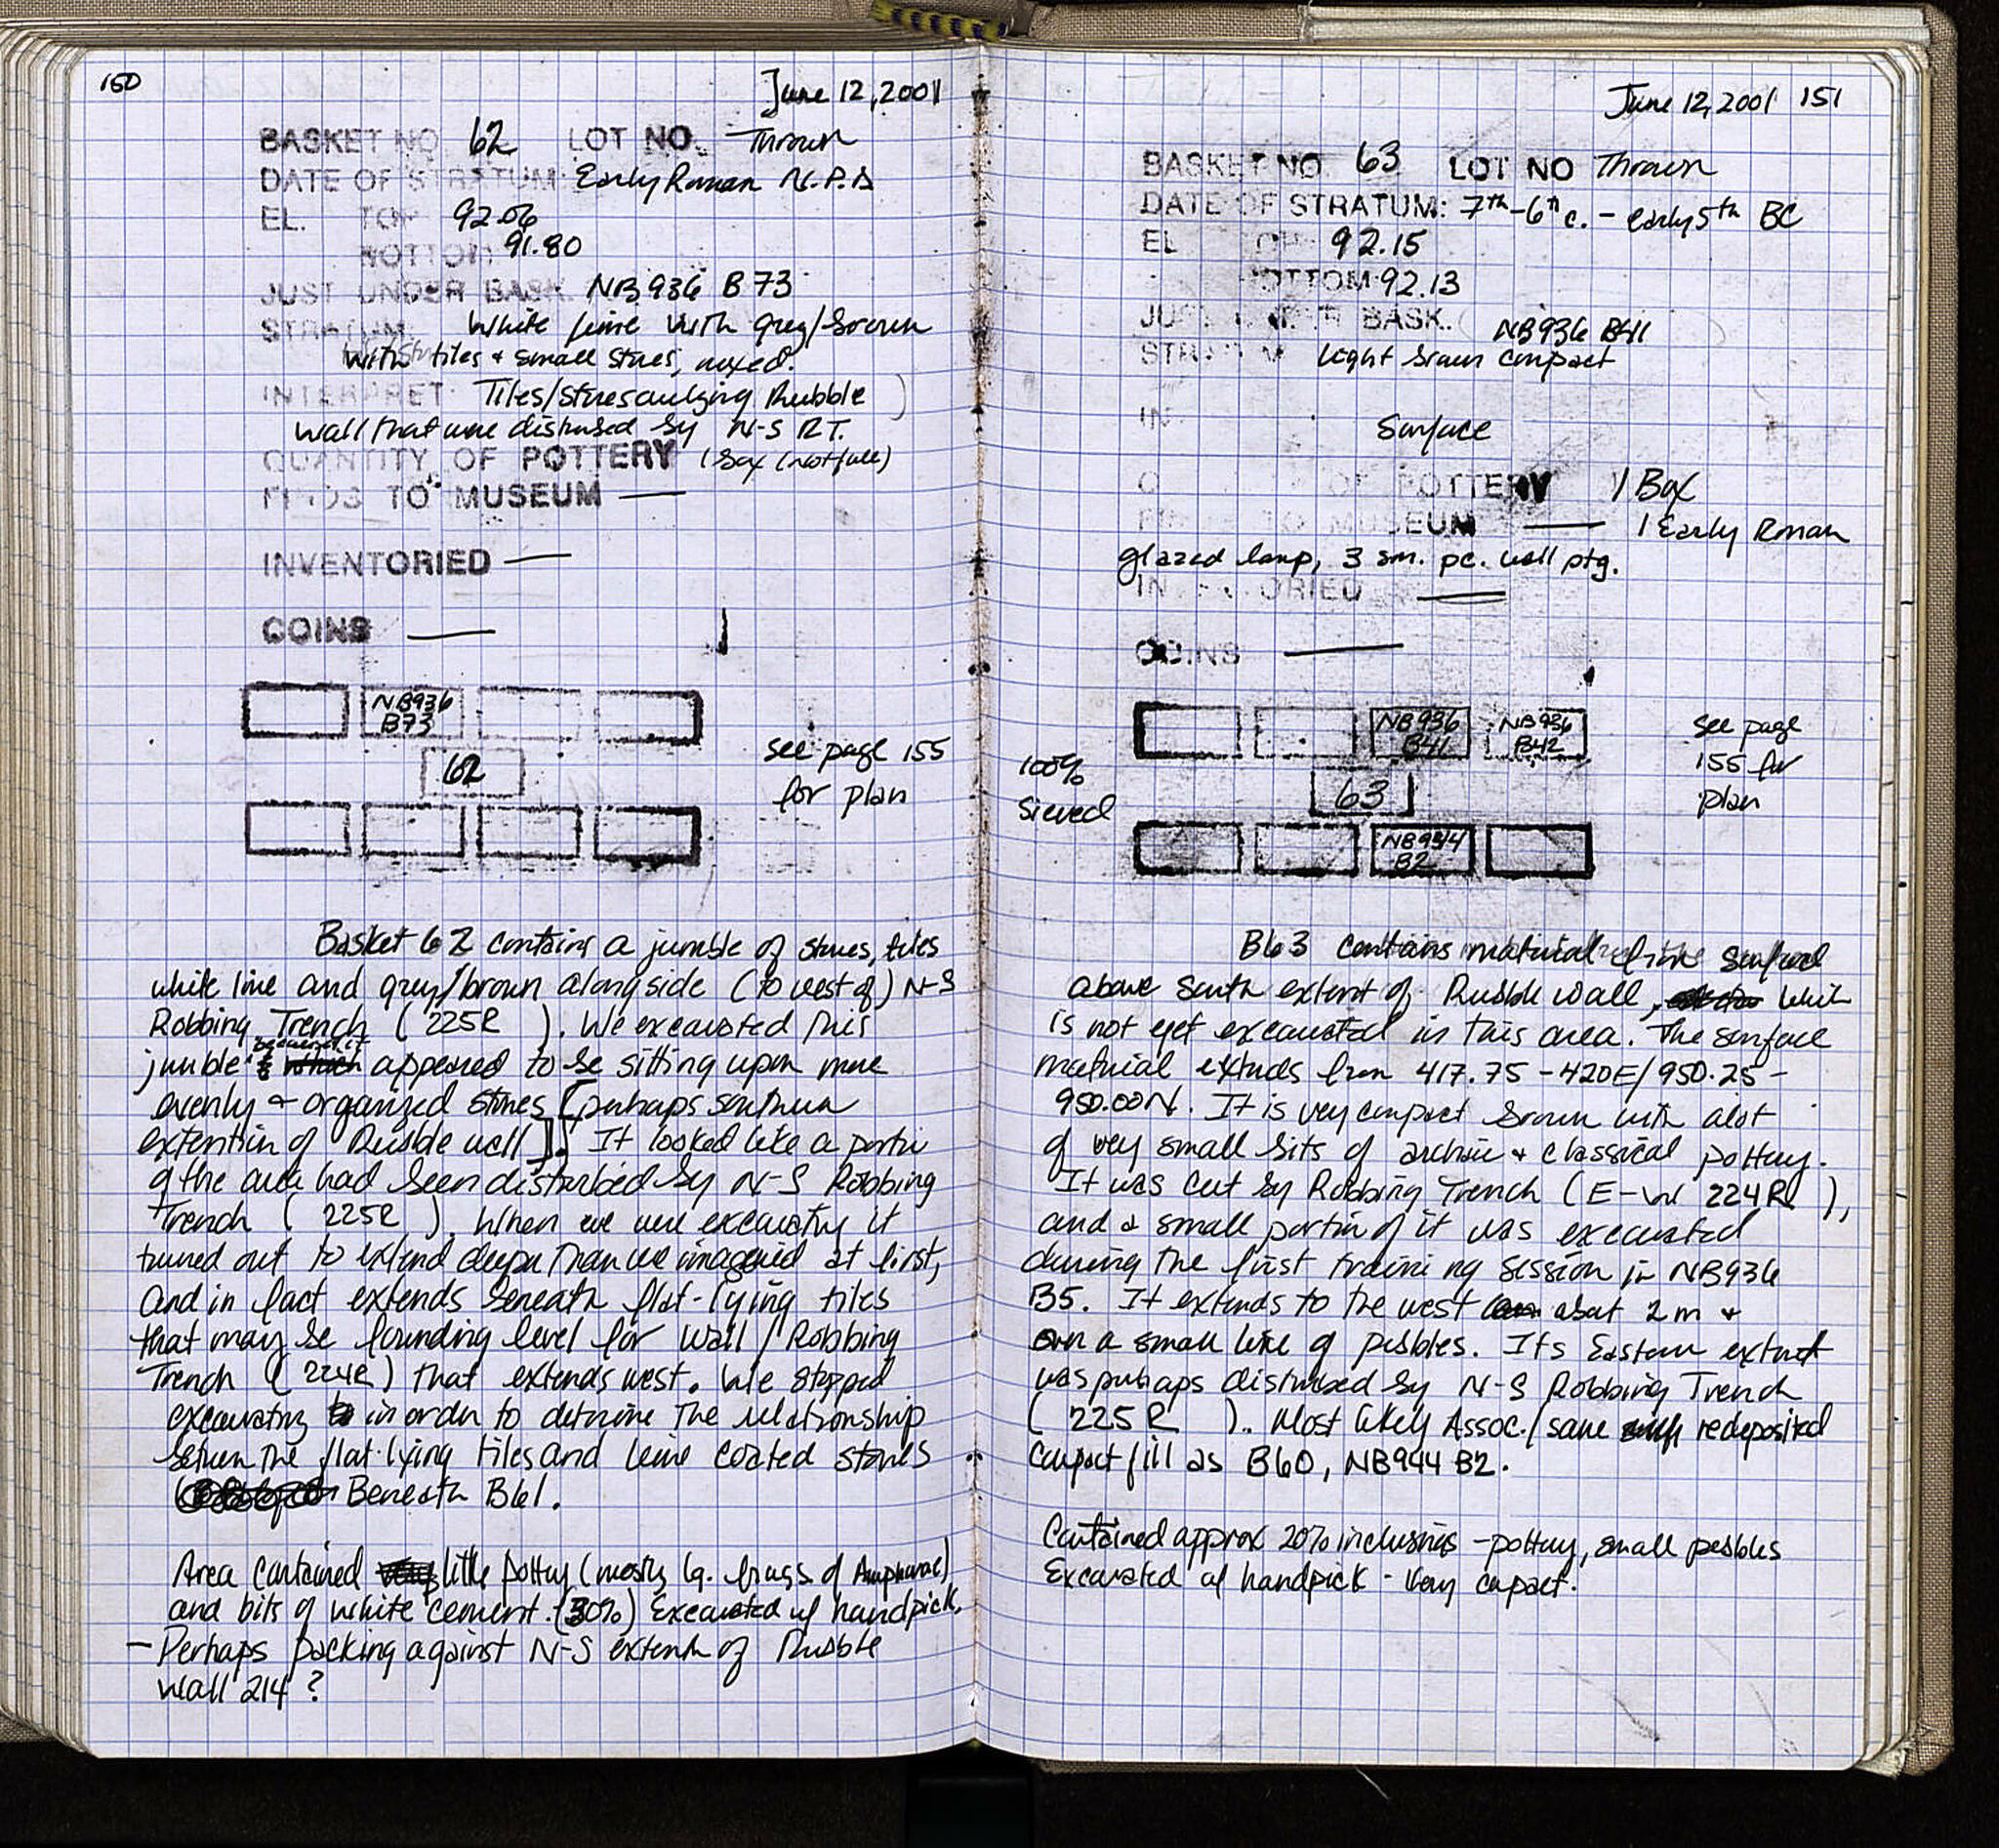 150
June 12, 2001
BASKET NO. 62 LOT NO. Thrown
DATE OF STRATUM: Early Roman N.P.D
EL. TOP 92.06
BOTTOM: 91.80
JUST UNDER BASK. NB936 B73
STRATUM: White lime with grey/brown
with tiles + small stones, mixed.
INTERPRET: Tiles/stones overlying Rubble
Wall that were disturbed by N-S R.T.
QUANTITY OF POTTERY 1 box (not full)
FINDS TO MUSEUM —
INVENTORIED —
COINS —
NB936
B73
62
see page 155
for plan
Basket 62 contains a jumble of stones, tiles
white lime and grey/brown alongside (to west of) N-S
Robbing Trench (225R ). We excavated this
jumble because it appeared to be sitting upon more
evenly + organized stones [perhaps southern
extention of Rubble wall]. It looked like a portion
of the area had been disturbed by N-S Robbing
Trench ( 225R ). When we were excavating it
turned out to extend deeper than we imagined at first,
and in fact extends beneath flat-lying tiles
that may be founding level for Wall/Robbing
Trench (224R) that extends west. We stopped
excavating in order to determine the relationship
between the flat-lying tiles and lime coated stones
Beneath B61.
Area contained little pottery (mostly lg. frags of Amphorae)
and bits of white cement. (30%) Excavated w/ handpick.
— Perhaps packing against N-S extent of Rubble
Wall 214?
June 12, 2001 151
BASKET NO. 63 LOT NO Thrown
DATE OF STRATUM: 7th-6th c. - early 5th BC
EL TOP: 92.15
BOTTOM: 92.13
JUST UNDER BASK. NB936 B41
STRATUM Light brown compact
IN Surface
QUANTITY OF POTTERY 1 Box
FINDS TO MUSEUM — 1 Early Roman
glazed lamp, 3 sm. pc. wall ptg.
INVENTORIED —
COINS —
NB936
B41
NB936
B42
see page
155 for
plan
100%
sieved
63
NB944
B2
B63 contains material from surface
above south extent of Rubble Wall, which
is not yet excavated in this area. The surface
material extends from 417.75 - 420E/950.25 -
950.00N. It is very compact brown with alot
of very small bits of archaic + classical pottery.
It was cut by Robbing Trench (E-W 224R ),
and a small portion of it was excavated
during the first training session in NB936
B5. It extends to the west about 2 m +
over a small line of pebbles. Its Eastern extent
was perhaps disturbed by N-S Robbing Trench
( 225R ). Most likely Assoc./same redeposited
compact fill as B60, NB944 B2.
Contained approx 20% inclusions - pottery, small pebbles
Excavated w/ handpick - very compact.